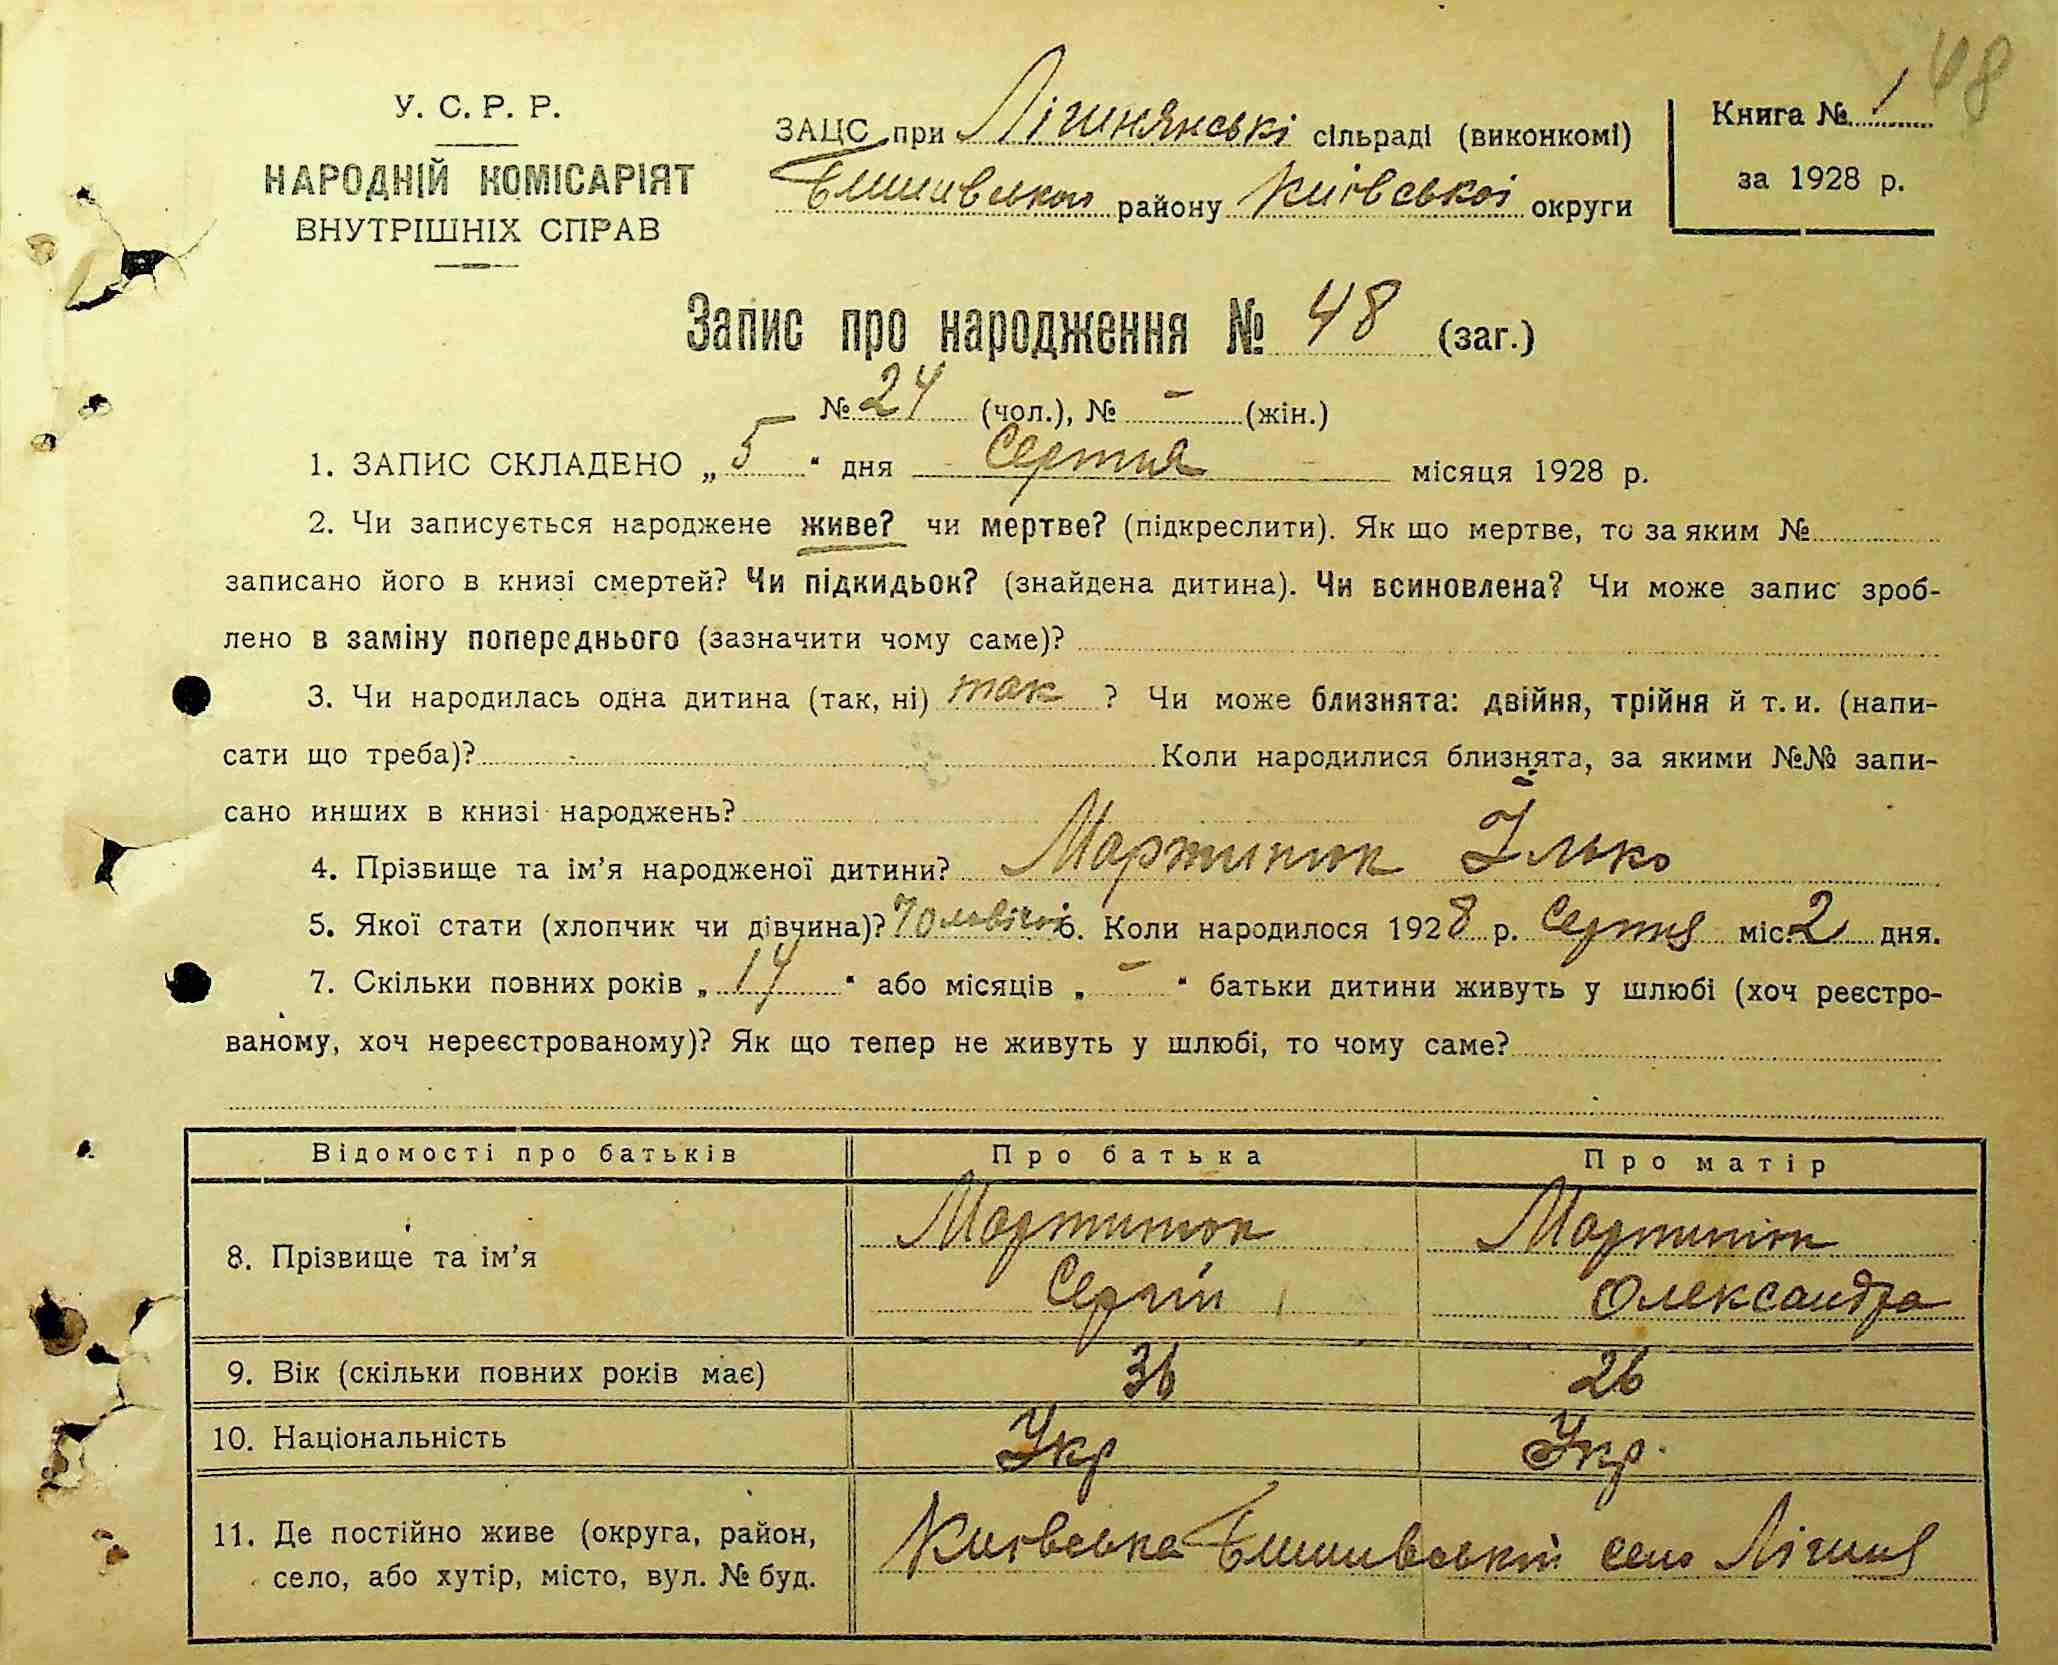 48
У. С. Р. Р.
НАРОДНІЙ КОМІСАРІЯТ
ВНУТРІШНІХ СПРАВ
ЗАЦС при Лішнянські сільраді (виконкомі)
Бишивського району Київської округи
Книга № 1
за 1928 р.
Запис про народження № 48 (заг.)
№ 24 (чол.), № - (жін.)
1. ЗАПИС СКЛАДЕНО „ 5 “ дня Серпня місяця 1928 р.
2. Чи записується народжене живе? чи мертве? (підкреслити). Як що мертве, то за яким №
записано його в книзі смертей? Чи підкидьок? (знайдена дитина). Чи всиновлена? Чи може запис зроб-
лено в заміну попереднього (зазначити чому саме)?
3. Чи народилась одна дитина (так, ні) так ? Чи може близнята: двійня, трійня й т. и. (напи-
сати що треба)? Коли народилися близнята, за якими №№ запи-
сано инших в книзі народжень?
4. Прізвище та ім’я народженої дитини? Мартинюк Ілько
5. Якої стати (хлопчик чи дівчина)? 6. Коли народилося 1928 р. Серпня міс. 2 дня.
7. Скільки повних років „ 14 “ або місяців „ - “ батьки дитини живуть у шлюбі (хоч реєстро-
ваному, хоч нереєстрованому)? Як що тепер не живуть у шлюбі, то чому саме?
Відомості про батьків Про батька Про матір
8. Прізвище та ім’я Мартинюк Мартинюк
Сергій Олександра
9. Вік (скільки повних років має) 36 26
10. Національність Укр Укр.
11. Де постійно живе (округа, район,
село, або хутір, місто, вул. № буд.
Київська Бишивський село Лішня